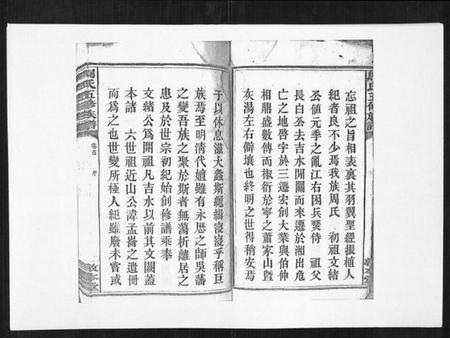 忘祖之旨相表裏其羽翼聖經振植人
紀者良不少焉我族周氏 初祖文緒
公値元季之亂江右困兵燹侍 祖父
長白公去吉水閒關而來遷於湘出危
亡之地啓宇於三遷宏創大業與伯仲
相鼎盛數傳而椒衍於寧之蕭家山曁
灰湯左右僻壤也終明之世得稍安焉
于以休息滋大螽斯繩緝寖寖乎稱巨
族焉至明淸代嬗雖有永厯之師吳藩
之變吾族之聚於斯者無蕩析離居之
患及於世宗初紀始創修譜乘奉
文緒公爲開祖凡吉水以前其文闕蓋
本諸 六世祖近山公諱孟嵛之遺冊
而爲之也世變所極人紀雖廢未嘗或
周氏五修族譜
卷首 序
敦本堂